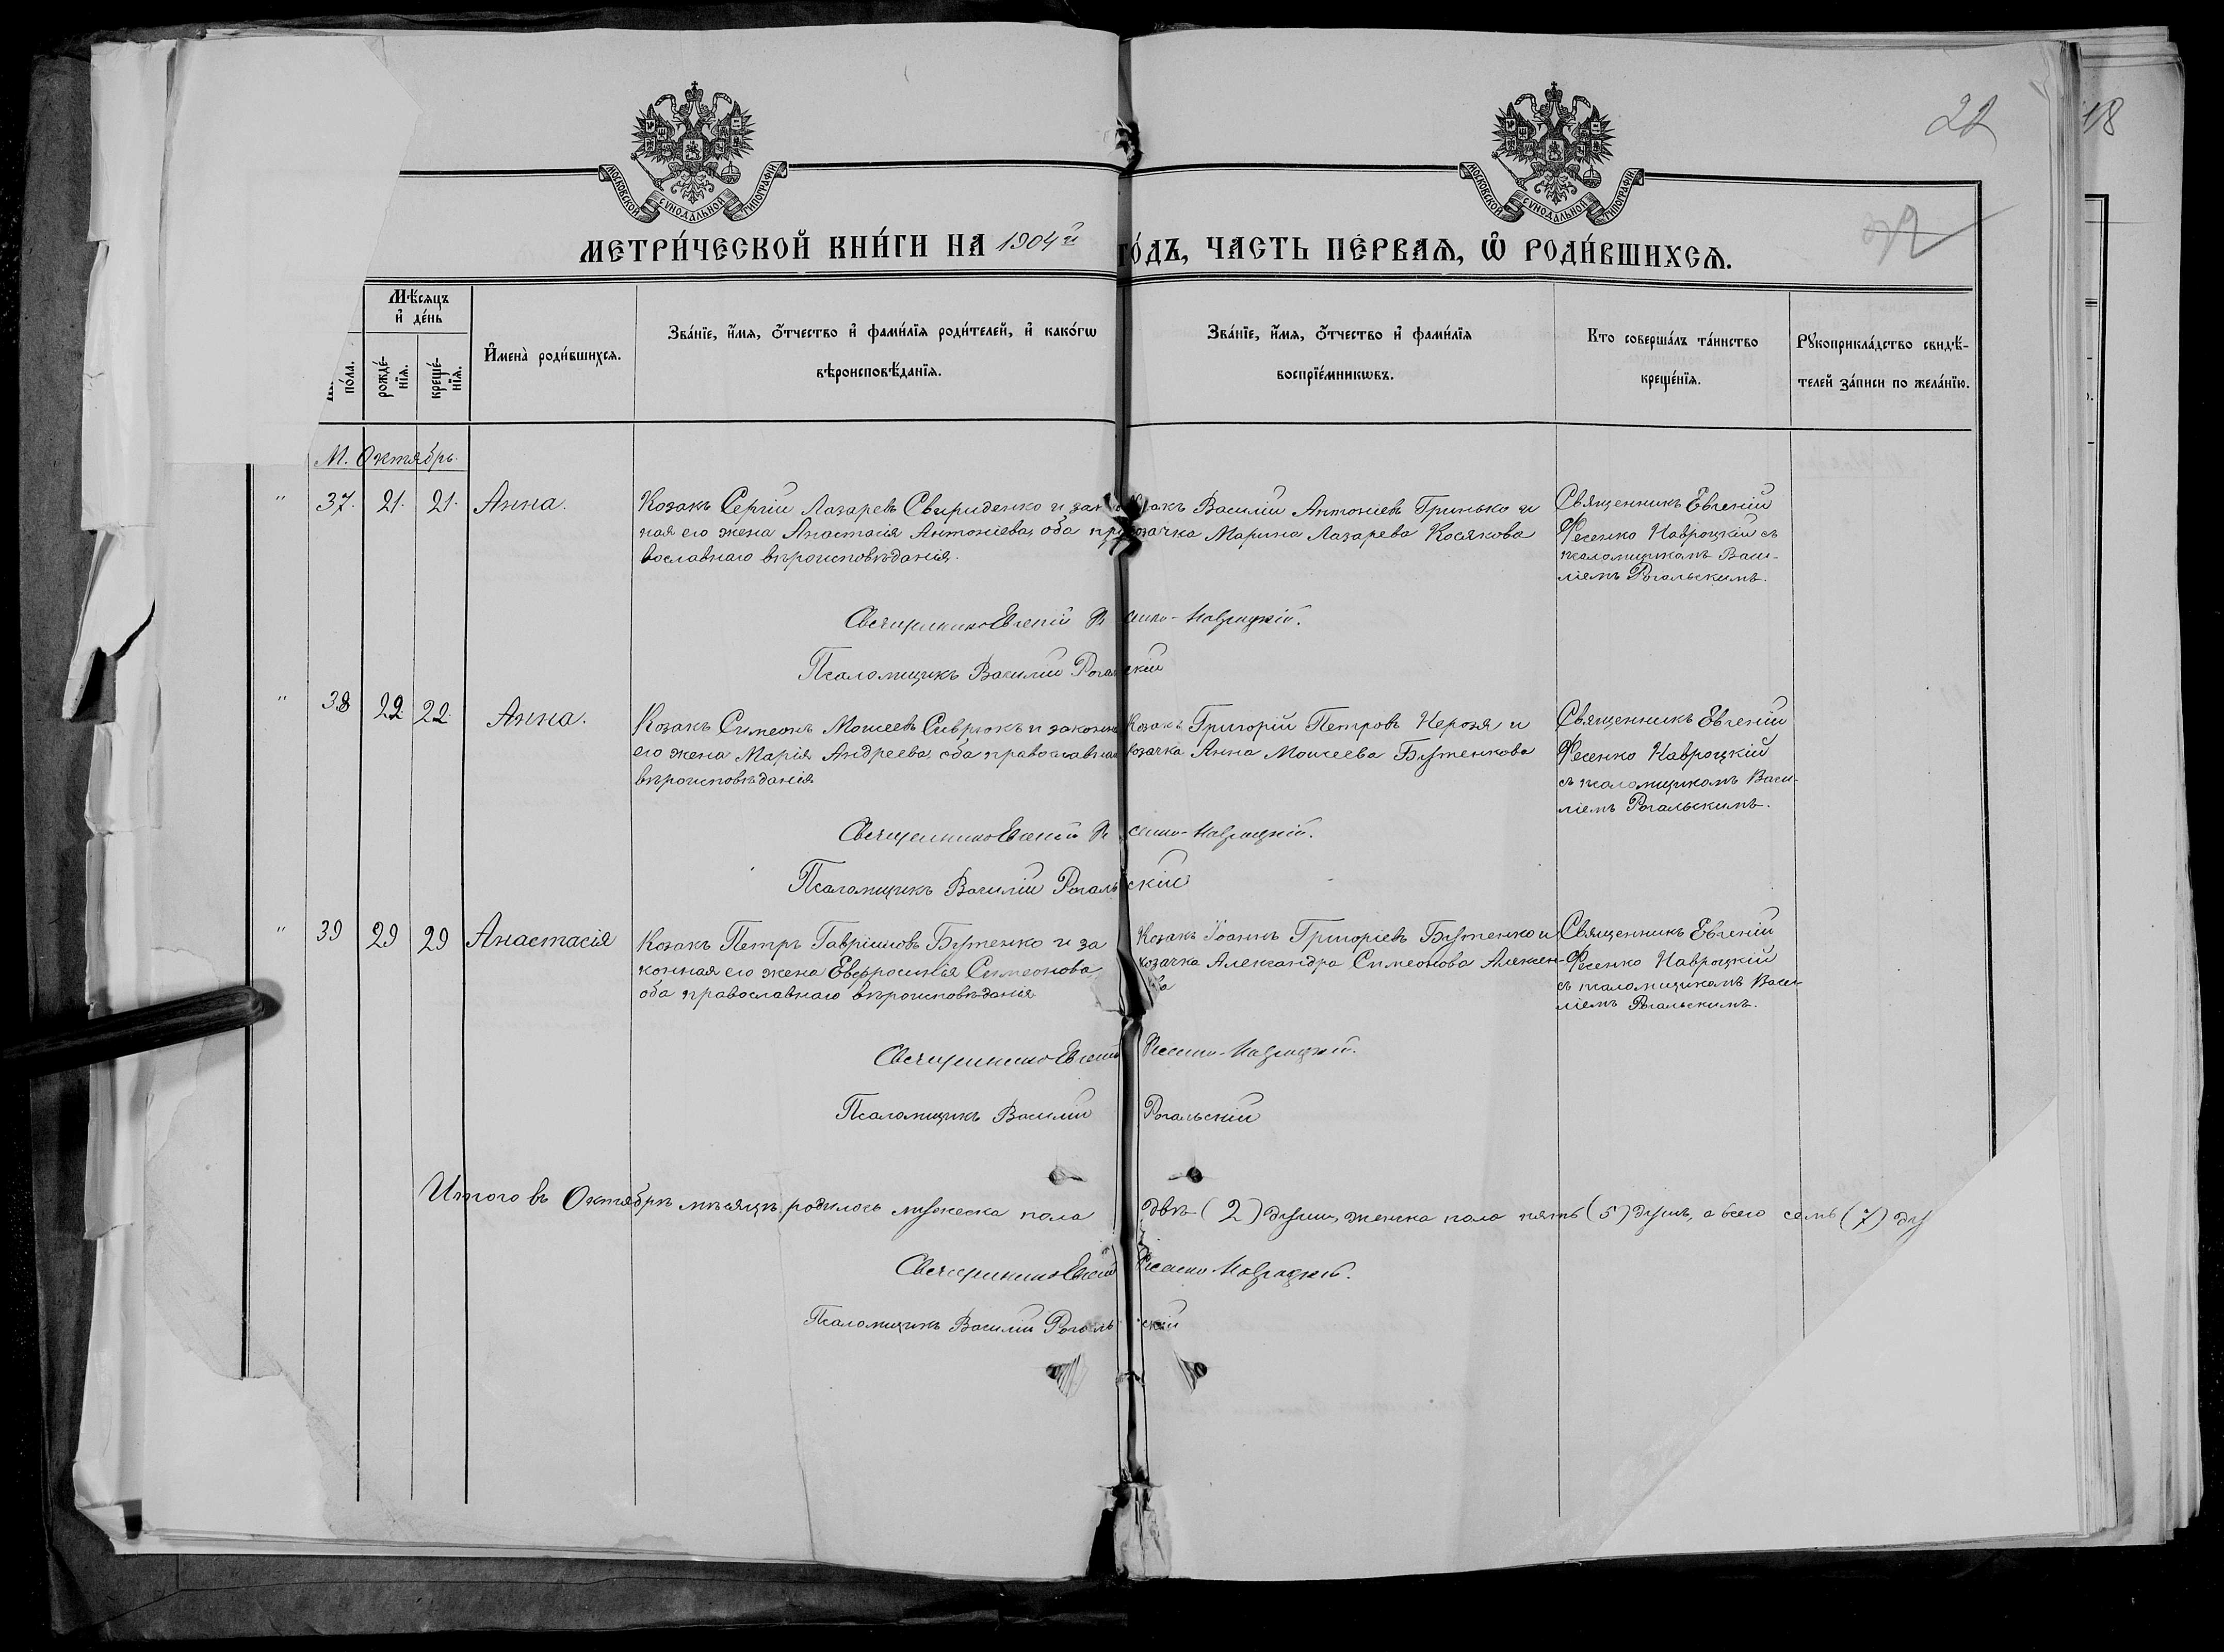 22
18
МОСКОВСКОЙ СѴНОДАЛЬНОЙ ТИПОГРАФІИ.
МОСКОВСКОЙ СѴНОДАЛЬНОЙ ТИПОГРАФІИ.
МЕТРИ́ЧЕСКОЙ КНИ́ГИ НА 1904й ГО́ДЪ, ЧАСТЬ ПЕ́РВАѦ, Ѿ РОДИ́ВШИХСѦ.
Мѣ́сѧцъ и҆ де́нь
по́ла.
рожде́-нїѧ.
креще́-нїѧ.
И҆мена̀ роди́вшихсѧ.
Зва́нїе, и҆́мѧ, ѻ҆́тчество и҆ фами́лїѧ роди́телей, и҆ како́гѡ
вѣроисповѣ́данїѧ.
Зва́нїе, и҆́мѧ, ѻ҆́тчество и҆ фами́лїѧ
воспрїе́мникѡвъ.
Кто соверша́лъ та́инство
креще́нїѧ.
Рꙋкоприкла́дство свидѣ́-
телей за́писи по жела́нїю.
М. Октябрь.
" 37. 21. 21. Анна.
Козакъ Сергій Лазаревъ Свириденко и зако
ная его жена Анастасія Антоніева, оба пра
вославнаго вѣроисповѣданія.
Козакъ Василій Антоніевъ Гринько и
козачка Марина Лазарева Косякова
Священникъ Евгеній
Фесенко Навроцкій съ
псаломщикомъ Васи-
ліемъ Рогальскимъ.
Священникъ Евгеній Фесенко-Навроцкій.
Псаломщикъ Василій Рогальскій
" 38 22 22. Анна.
Козакъ Симеонъ Моисеевъ Сиврюкъ и законн
его жена Марія Андреева, оба православнаго
вѣроисповѣданія
Козакъ Григорій Петровъ Нерозя и
козачка Анна Моисеева Бутенкова
Священникъ Евгеній
Фесенко Навроцкій
съ псаломщикомъ Васи-
ліемъ Рогальскимъ.
Священникъ Евгеній Фесенко-Навроцкій.
Псаломщикъ Василій Рогальскій
" 39 29 29 Анастасія
Козакъ Петръ Гавріиловъ Бутенко и за
конная его жена Евфросинья Симеонова
оба православнаго вѣроисповѣданія
Козакъ Іоаннъ Григоріевъ Бутенко и
козачка Александра Симеонова Алексен-
ва
Священникъ Евгеній
Фесенко Навроцкій
съ псаломщикомъ Васи-
ліемъ Рогальскимъ.
Священникъ Евгеній Фесенко-Навроцкій.
Псаломщикъ Василій Рогальскій
Итого въ Октябрѣ мѣсяцѣ родилось мужеска пола двѣ (2) души, женска пола пять (5) душъ, а всего семь (7) ду
Священникъ Евгеній Фесенко Навроцкій.
Псаломщикъ Василій Рогальскій